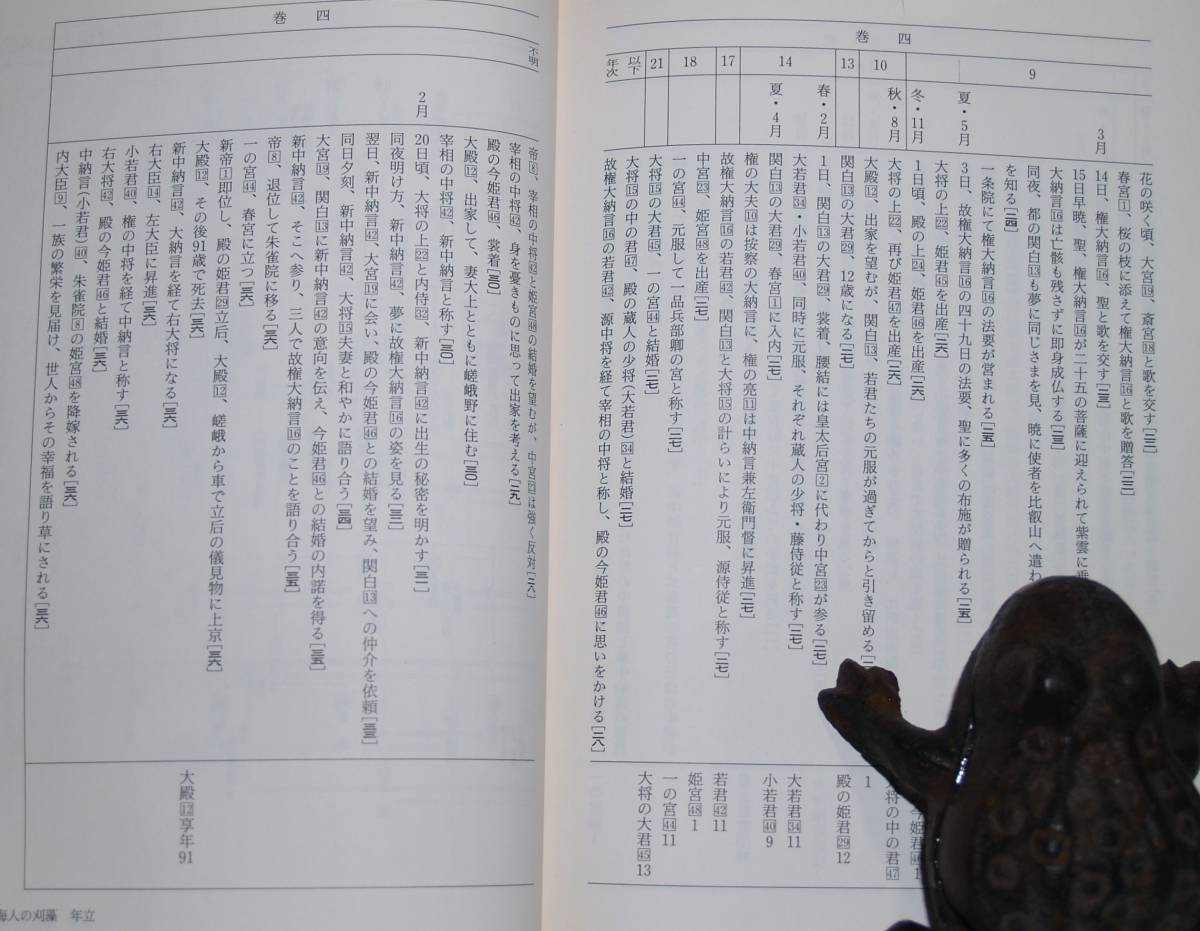 四　巻
9
10
13
14
17
18
21
以下
年次
3月
夏・5月
冬・11月
秋・8月
春・2月
夏・4月
花の咲く頃、大宮⑲、斎宮⑱と歌を交す[二三]
春宮①、桜の枝に添えて権大納言⑯と歌を贈答[二三]
14日、権大納言⑯、聖と歌を交す[二三]
15日早暁、聖、権大納言⑯が二十五の菩薩に迎えられて紫雲に
大納言⑯は亡骸も残さずに即身成仏する[二三]
同夜、都の関白⑬も夢に同じさまを見、暁に使者を比叡山へ遣わ
を知る[二四]
一条院にて権大納言⑯の法要が営まれる[二五]
3日、故権大納言⑯の四十九日の法要、聖に多くの布施が贈られる[二五]
大将の上㉒、姫君㊺を出産[二六]
1日頃、殿の上㉔、姫君㊻を出産[二六]
大将の上㉒、再び姫君㊼を出産[二六]
大殿⑫、出家を望むが、関白⑬、若君たちの元服が過ぎてからと引き留める
関白⑬の大君㉙、12歳になる[二七]
1日、関白⑬の大君㉙、裳着、腰結には皇太后宮②に代わり中宮㉓が参る[二七]
大若君㉞・小若君㊵、同時に元服、それぞれ蔵人の少将・藤侍従と称す[二七]
関白⑬の大君㉙、春宮①に入内[二七]
権の大夫⑩は按察の大納言に、権の亮⑪は中納言兼左衛門督に昇進[二七]
故権大納言⑯の若君㊷、関白⑬と大将⑮の計らいにより元服、源侍従と称す[二七]
中宮㉓、姫宮㊽を出産[二七]
一の宮㊹、元服して一品兵部卿の宮と称す[二七]
大将⑮の大君㊺、一の宮㊹と結婚[二七]
大将⑮の中の君㊼、殿の蔵人の少将（大若君）㉞と結婚[二七]
故権大納言⑯の若君㊷、源中将を経て宰相の中将と称し、殿の今姫君㊻に思いをかける[二八]
今姫君㊻1
大将の中の君㊼
1
殿の姫君㉙12
大若君㉞11
小若君㊵9
若君㊷11
姫宮㊽1
一の宮㊹11
大将の大君㊺13
四　巻
不明
2月
帝⑧、宰相の中将㊷と姫宮㊽の結婚を望むが、中宮㉓は強く反対[二八]
宰相の中将㊷、身を憂きものに思って出家を考える[二九]
殿の今姫君㊻、裳着[三〇]
大殿⑫、出家して、妻大上とともに嵯峨野に住む[三〇]
宰相の中将㊷、新中納言と称す[三〇]
20日頃、大将の上㉒と内侍㉜、新中納言㊷に出生の秘密を明かす[三一]
同夜明け方、新中納言㊷、夢に故権大納言⑯の姿を見る[三二]
翌日、新中納言㊷、大宮⑲に会い、殿の今姫君㊻との結婚を望み、関白⑬への仲介を依頼[三三]
同日夕刻、新中納言㊷、大将⑮夫妻と和やかに語り合う[三四]
大宮⑲、関白⑬に新中納言㊷の意向を伝え、今姫君㊻との結婚の内諾を得る[三五]
新中納言㊷、そこへ参り、三人で故権大納言⑯のことを語り合う[三五]
帝⑧、退位して朱雀院に移る[三六]
一の宮㊹、春宮に立つ[三六]
新帝①即位し、殿の姫君㉙立后、大殿⑫、嵯峨から車で立后の儀見物に上京[三六]
大殿⑫、その後91歳で死去[三六]
新中納言㊷、大納言を経て右大将になる[三六]
右大臣⑭、左大臣に昇進[三六]
小若君㊵、権の中将を経て中納言と称す[三六]
右大将㊷、殿の今姫君㊻と結婚[三六]
中納言（小若君）㊵、朱雀院⑧の姫宮㊽を降嫁される[三六]
内大臣⑨、一族の繁栄を見届け、世人からその幸福を語り草にされる[三六]
大殿⑫享年91
海人の刈藻　年立